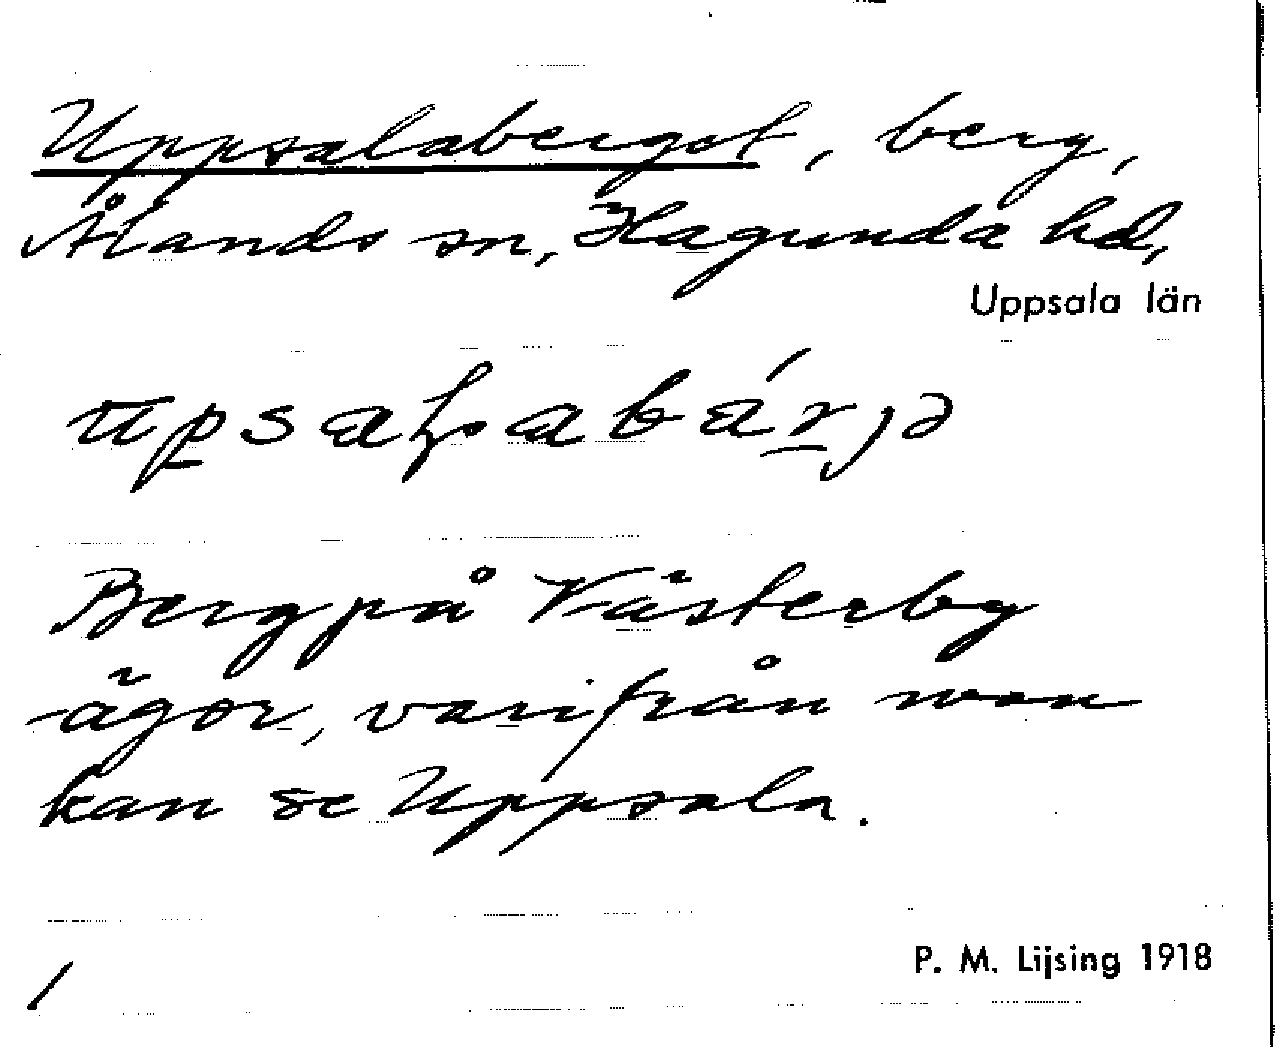 Uppsalaberget, berg,
Ålands sn, Hagunda hd,
Uppsala län
Berg på Västerby
ägor, varifrån man
kan se Uppsala.
P. M. Lijsing 1918